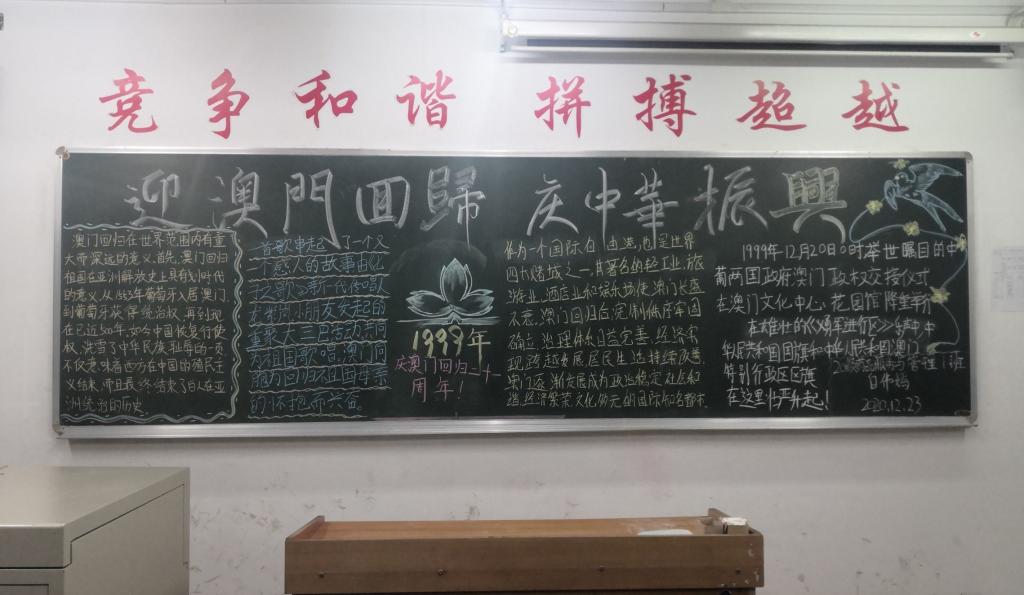 竞争和谐 拼搏超越
迎澳門回歸 庆中華振興
澳门回归在世界范围内有重
大而深远的意义。首先,澳门回归
祖国在亚洲解放史上具有划时代
的意义,从1553年葡萄牙人居澳门,
到葡萄牙获得统治权,再到现
在已近500年,如今中国恢复行使
权,洗雪了中华民族耻辱的一页,
不仅意味着西方在中国的殖民主
义结束,而且最终结束了白人在亚
洲统治的历史
一首歌串起了一个又
一个感人的故事由《七
子之歌》新一代传唱人
大三巴
为祖国歌唱,澳门同
胞为回归祖国母亲
的怀抱而兴奋。
1999年
庆澳门回归二十一
周年!
作为一个国际自由港,也是世界
四大赌城之一,其著名的轻工业、旅
游业、酒店业和娱乐场使澳门长盛
不衰,澳门回归后定制秩序牢固
确立,治理体系日益完善,经济实
现跨越发展,居民生活持续改善,
澳门逐渐发展成为政治稳定、社会和
谐、经济繁荣、文化多元的国际知名都市。
1999年12月20日0时举世瞩目的中
葡两国政府澳门政权交接仪式
在澳门文化中心花园馆隆重举行
在雄壮的《义勇军进行》特声中中
华人民共和国国旗和中华人民共和国澳门
特别行政区区旗
在这里庄严升起!
管理1班
2020.12.23